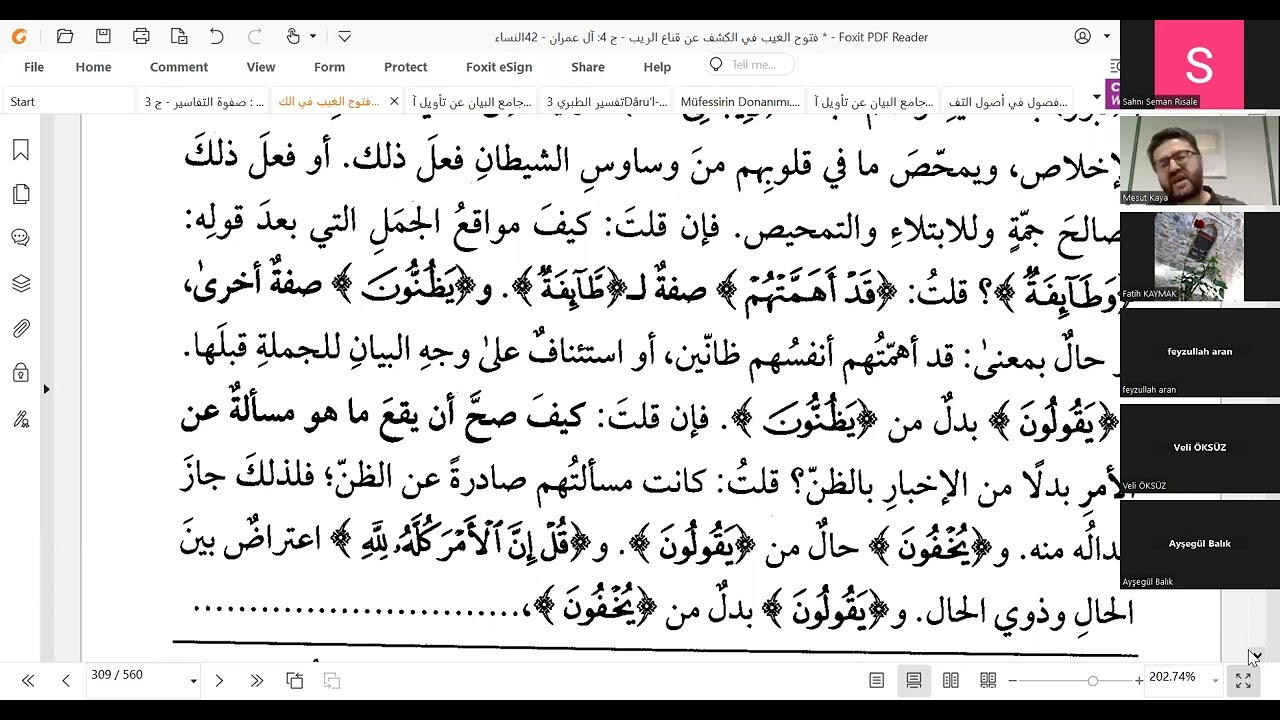 * فتوح الغيب في الكشف عن قناع الريب - ج 4: آل عمران - 42النساء - Foxit PDF Reader
File Home Comment View Form Protect Foxit eSign Share Help Tell me...
Start
صفوة التفاسير - ج 3 : ...
فتوح الغيب في الك...
جامع البيان عن تأويل آ...
تفسير الطبري 3Dâru'l-...
Müfessirin Donanımı....
جامع البيان عن تأويل آ...
فصول في أصول التف...
لإخلاص، ويمحّصَ ما في قلوبِهم منَ وساوسِ الشيطانِ فعلَ ذلك. أو فعلَ ذلكَ
صالحَ جمّةٍ وللابتلاءِ والتمحيص. فإن قلتَ: كيفَ مواقعُ الجمَلِ التي بعدَ قولِه:
﴿وَطَآئِفَةٌ﴾؟ قلتُ: ﴿قَدْ أَهَمَّتْهُمْ﴾ صفةٌ لـ﴿طَّآئِفَةٌ﴾. و﴿يَظُنُّونَ﴾ صفةٌ أخرىٰ،
حالٌ بمعنىٰ: قد أهمّتْهُم أنفسُهم ظانّين، أو استئنافٌ علىٰ وجهِ البيانِ للجملةِ قبلَها.
﴿يَقُولُونَ﴾ بدلٌ من ﴿يَظُنُّونَ﴾. فإن قلتَ: كيفَ صحَّ أن يقعَ ما هو مسألةٌ عن
لأمرِ بدلًا من الإخبارِ بالظنّ؟ قلتُ: كانت مسألتُهم صادرةً عن الظنّ؛ فلذلكَ جازَ
بدالُه منه. و﴿يُخْفُونَ﴾ حالٌ من ﴿يَقُولُونَ﴾. و﴿قُلْ إِنَّ ٱلْأَمْرَ كُلَّهُۥ لِلَّهِ﴾ اعتراضٌ بينَ
الحالِ وذوي الحال. و﴿يَقُولُونَ﴾ بدلٌ من ﴿يُخْفُونَ﴾، ................................
309 / 560
202.74%
S
Sahnı Seman Risale
Mesut Kaya
Fatih KAYMAK
feyzullah aran
feyzullah aran
Veli ÖKSÜZ
Veli ÖKSÜZ
Ayşegül Balık
Ayşegül Balık